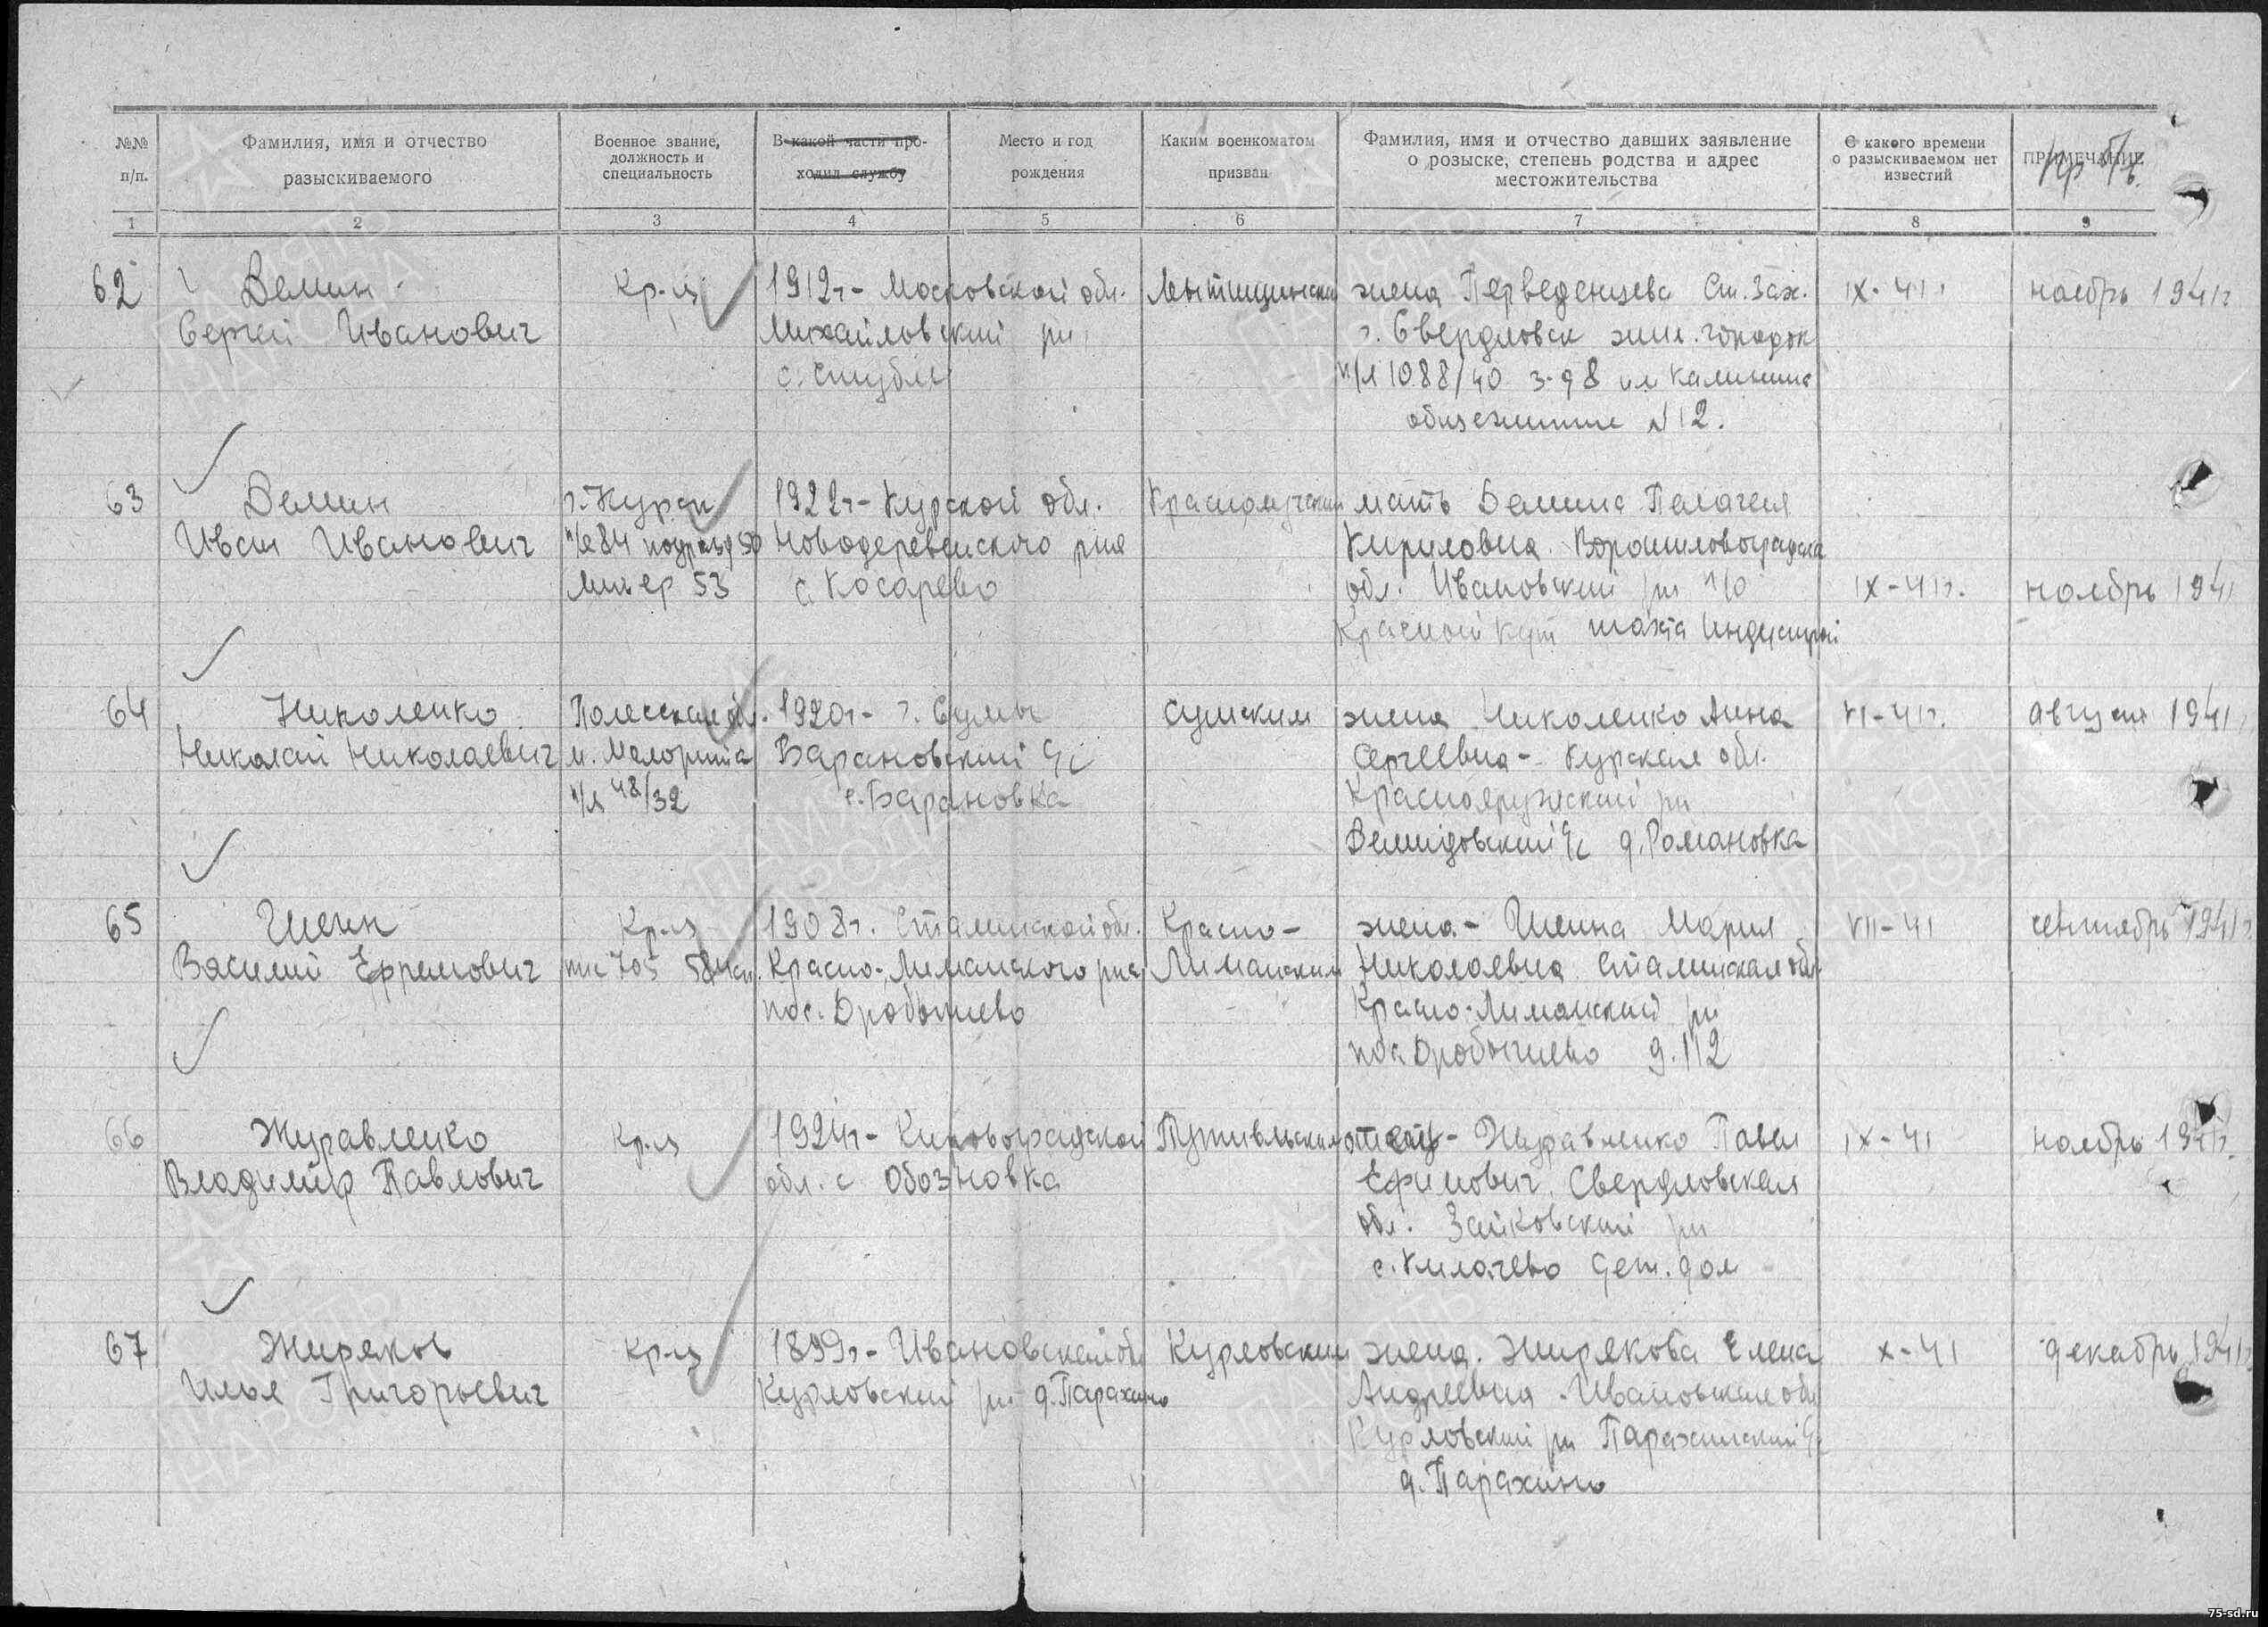 №№ п/п.
Фамилия, имя и отчество разыскиваемого
Военное звание, должность и специальность
В какой части проходил службу
Место и год рождения
Каким военкоматом призван
Фамилия, имя и отчество давших заявление о розыске, степень родства и адрес местожительства
С какого времени о разыскиваемом нет известий
ПРИМЕЧАНИЕ
1 2 3 4 5 6 7 8 9
62 Демин Кр-ц 1912г - Московской обл. Мытищинским жена Перведенцева Ст. Зах. IX-41г ноябрь 1941г
Сергей Иванович Михайловский рн г. Свердловск жил. городок
п/я 1088/40 им Калинина
общежитие №12.
63 Демин г. Курск 1922г - Курской обл. мать Демина Пелагея
Иван Иванович п/я 84 подразд 50 Новодеревенского р-на Кириловна. Ворошиловоградская
с. Косарево обл. Ивановский рн п/о IX-41г. ноябрь 1941
Красный Кут шахта
64 Николенко Полесская обл. 1920г - г. Сумы Сумским жена Николенко Анна VI-41г. август 1941г
Николай Николаевич м. Малорита Барановский с/с Сергеевна - Курская обл.
п/я 48/32 с. Барановка Краснояружский рн
Демидовский с/с д. Романовка
65 Шеин Кр-ц 1908г. Сталинской обл. Красно- жена - Шеина Мария VII-41 сентябрь 1941г
Василий Ефремович 705 584 Красно-Лиманского р-на Лиманским Николаевна Сталинская обл
пос. Дробышево Красно-Лиманский рн
пос Дробышево д. 112
66 Журавленко Кр-ц 1924г - Кировоградской Путивльским отец - Журавленко Павел IX-41 ноябрь 1941г.
Владимир Павлович обл. с Обозновка Ефимович. Свердловская
обл. Зайковский рн
с. Килачево Дет. дом
67 Жиряков Кр-ц 1899г - Ивановской обл Курловским жена. Жирякова Елена X-41 декабрь 1941г
Илья Григорьевич Курловский рн д. Парахино Андреевна. Ивановская обл
Курловский рн Парахинский с/с
д. Парахино
ПАМЯТЬ НАРОДА
75-sd.ru